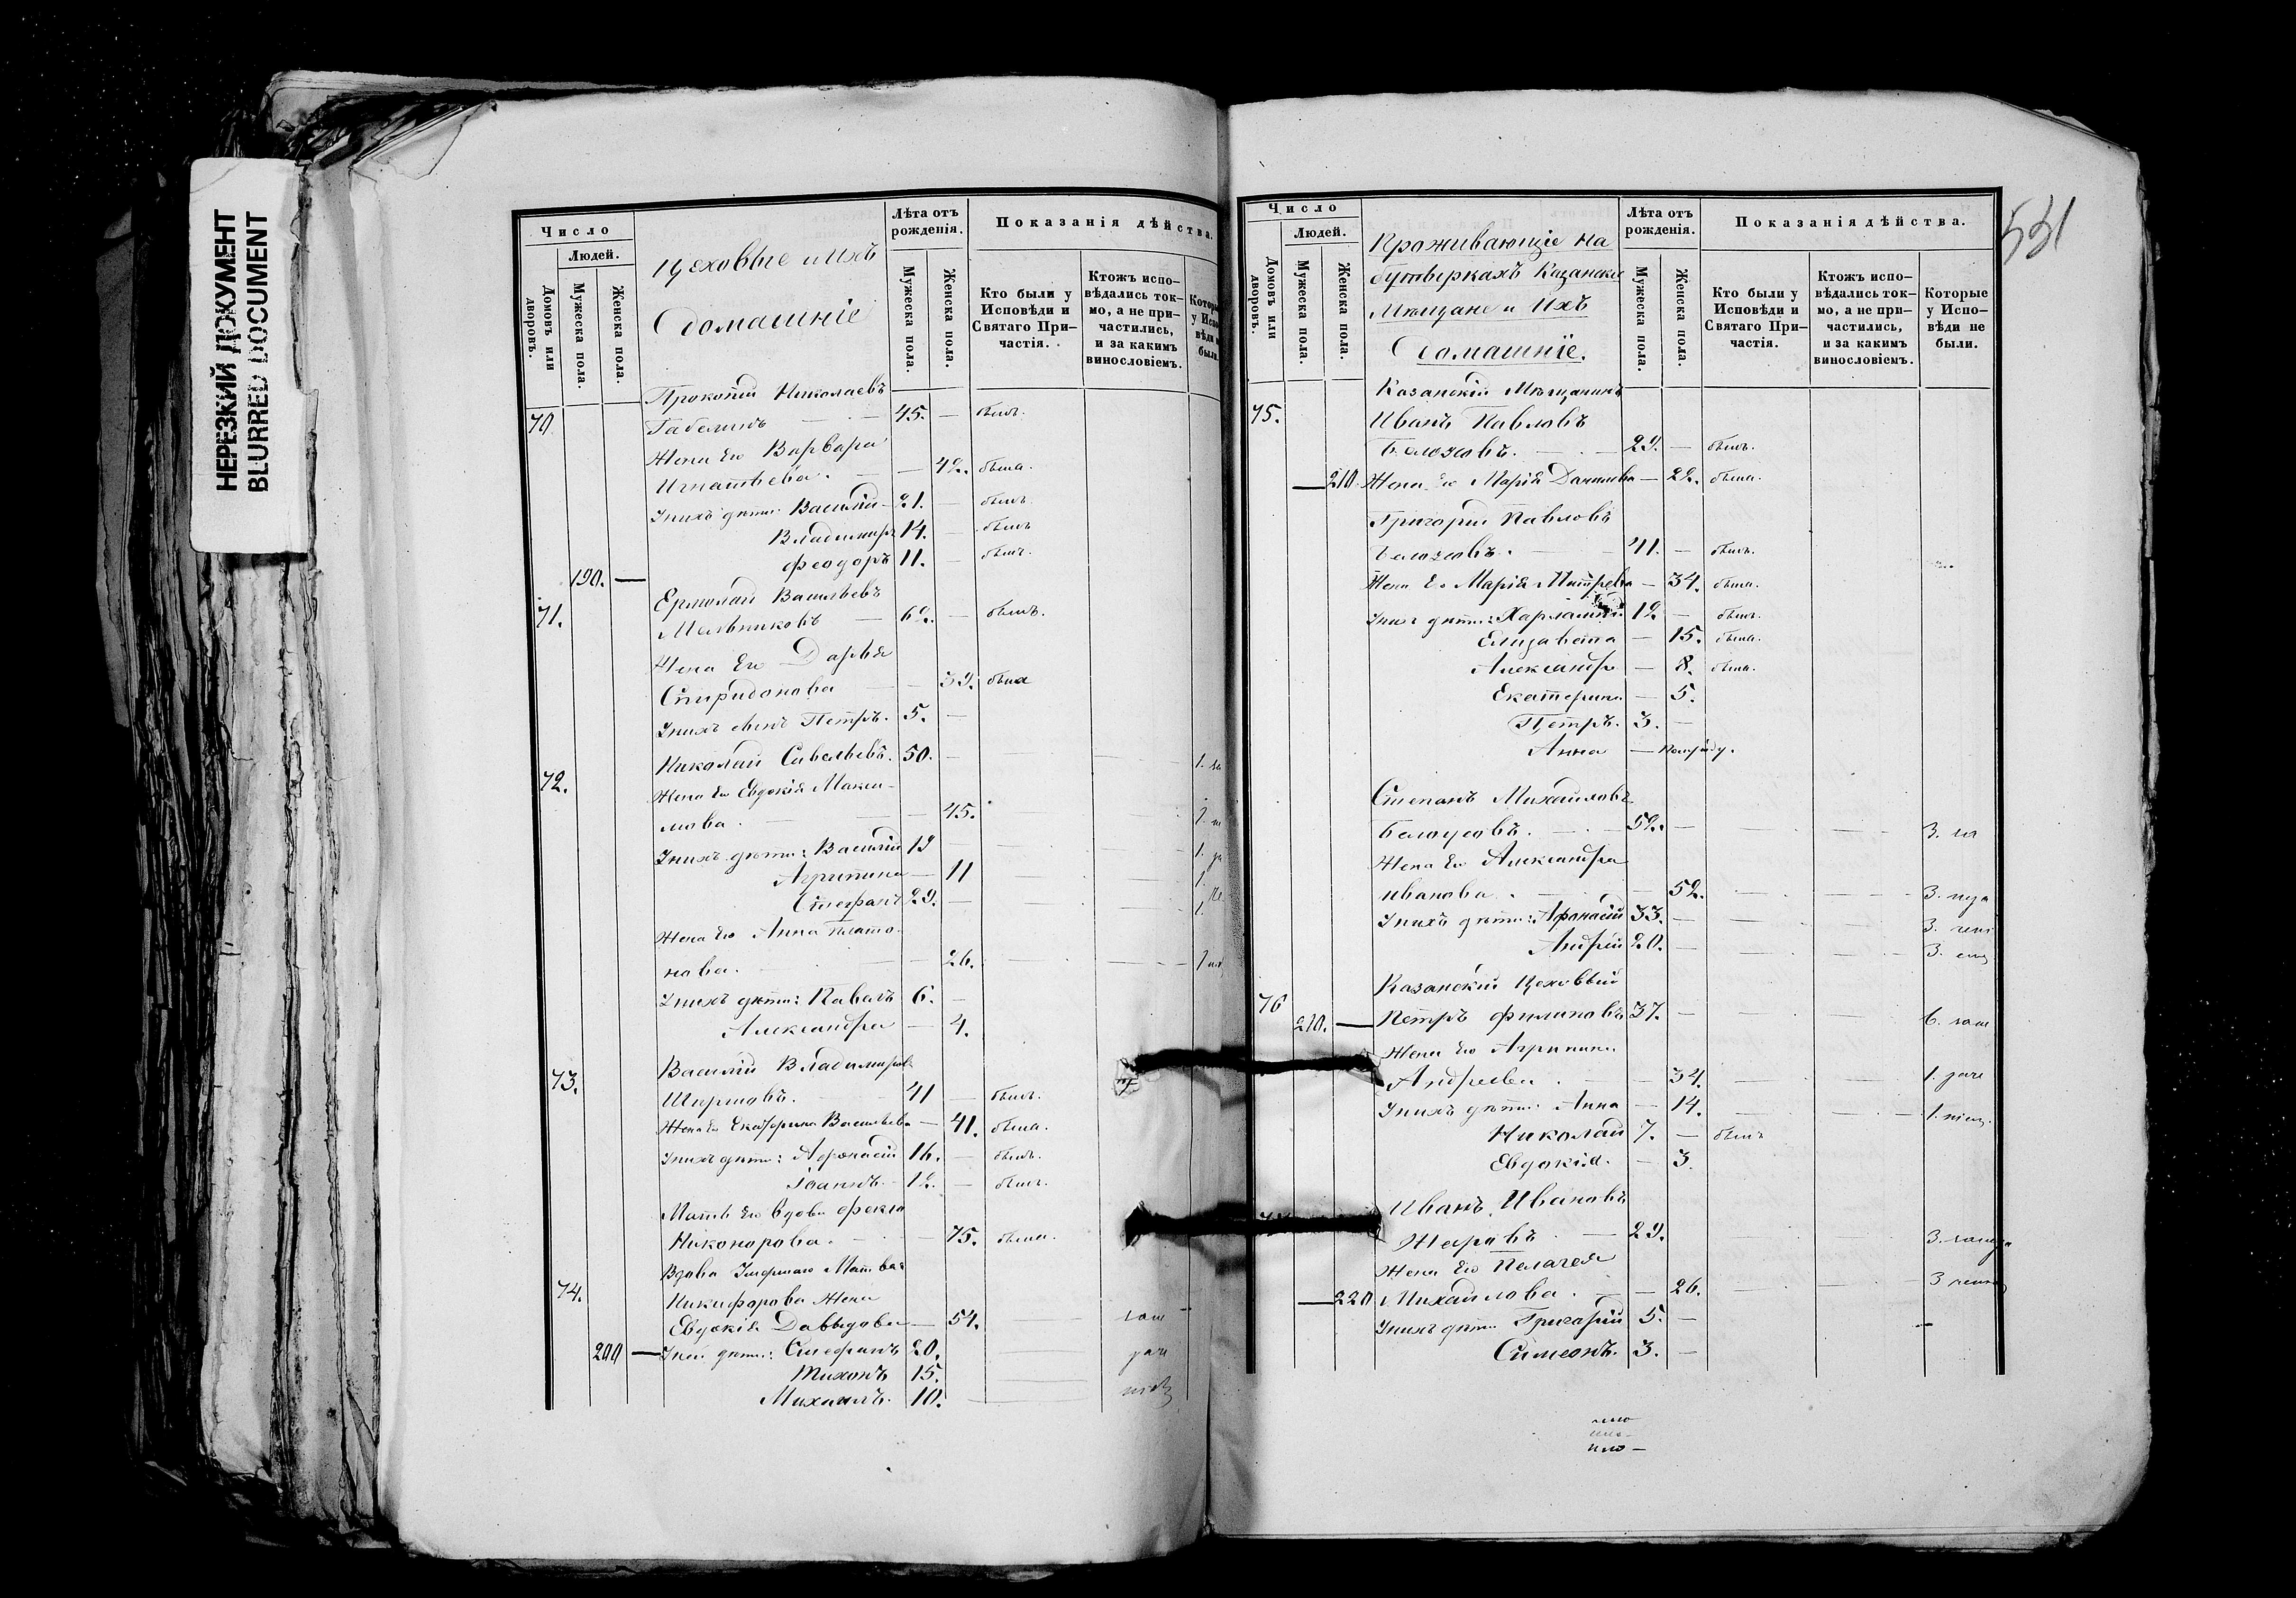 НЕРЕЗКИЙ ДОКУМЕНТ
BLURRED DOCUMENT
Число
Людей.
Домовъ или дворовъ.
Мужеска пола.
Женска пола.
Цеховые и Ихъ
домашніе
Лѣта отъ рожденія.
Мужеска пола.
Женска пола.
Показанія дѣйства.
Кто были у Исповѣди и Святаго Причастія.
Ктожъ исповѣдались токмо, а не причастились, и за какимъ винословіемъ.
Прокопій Николаевъ
70 45. — былъ.
Жена Его Варвара
Игнатьева. — 42. была.
Ихъ дѣти: Василій 21. — былъ
Владимиръ 14. — былъ
Феодоръ 11. — былъ
190. —
Ермолай Васильевъ
71. Мельниковъ — 62. — былъ.
Жена Его Дарья
Спиридонова — 39. была
Петръ. 5. —
72. Николай Савельевъ. 50. —
Жена Его Евдокія Макси-
мова. — 45.
дѣти: Василій 19
Агрипина — 11
Стефанъ 29. —
Жена Его Анна Плато-
нова. — 26.
дѣти: Павелъ 6. —
Александра — 4.
Василій Владимиров
73. 41 — былъ.
Жена Его Екатерина Васильева — 41. была.
дѣти: Афонасій 16. — былъ.
Іоаннъ. 12. — былъ.
Мать Его вдова Фекла
Никонорова. — 75. была.
Вдова Умершаго Матвея
74. Никифорова Жена
Евдокія Давыдова — 54.
200 — дѣти: Стефанъ 20.
Тихонъ 15.
Михаилъ. 10.
531
Число
Людей.
Домовъ или дворовъ.
Мужеска пола.
Женска пола.
Проживающіе на
Бутыркахъ Казанскіе
Мѣщане и Ихъ
Домашніе.
Лѣта отъ рожденія.
Мужеска пола.
Женска пола.
Показанія дѣйства.
Кто были у Исповѣди и Святаго Причастія.
Ктожъ исповѣдались токмо, а не причастились, и за какимъ винословіемъ.
Которые у Исповѣди не были.
Казанскій Мѣщанинъ
75. Иванъ Павловъ
29. — былъ.
— 210 Жена Его Марія Данилова — 22. была.
Григорій Павловъ
41. — былъ.
Жена Его Марія — 34. была.
дѣти: Харлампій 12. — былъ.
Елизавета — 15. была.
Александра — 8. была.
Екатерина — 5.
Петръ. 3. —
Анна — полгоду.
Степанъ Михайловъ
Белоусовъ. 52. —
Жена Его Александра
Иванова. — 52.
дѣти: Афонасій 33. —
Андрей 20. —
Казанскій Цеховый
76 210. — Петръ Филиповъ 37. —
Жена Его Агрипина
Андреева. — 34.
дѣти: Анна — 14.
Николай 7. — былъ
Евдокія. — 3.
Иванъ Ивановъ
Жаровъ 29.
Жена Его Пелагея
— 220 Михайлова. — 26.
дѣти Григорій 5. —
Симеонъ. 3. —